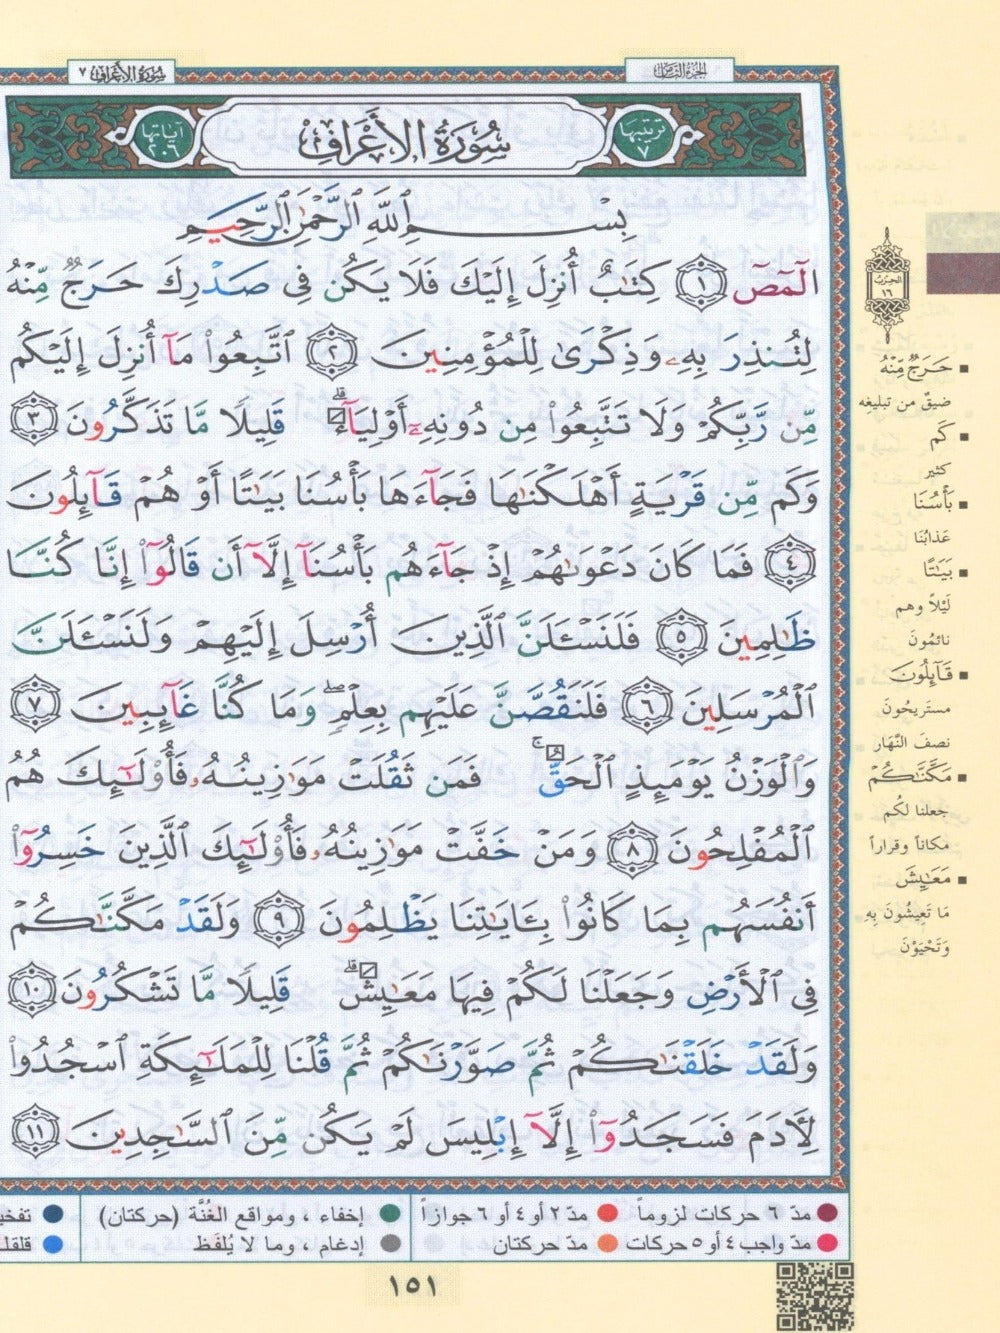 سُورَةُ الأَعْرَافِ ٧
الجُزءُ الثَّامِنُ
آيَاتُهَا ٢٠٦
سُورَةُ الأَعْرَافِ
تَرْتِيبُهَا ٧
بِسْمِ ٱللَّهِ ٱلرَّحْمَٰنِ ٱلرَّحِيمِ
الٓمٓصٓ ١ كِتَٰبٌ أُنزِلَ إِلَيْكَ فَلَا يَكُن فِى صَدْرِكَ حَرَجٌ مِّنْهُ
لِتُنذِرَ بِهِۦ وَذِكْرَىٰ لِلْمُؤْمِنِينَ ٢ ٱتَّبِعُوا۟ مَآ أُنزِلَ إِلَيْكُم
مِّن رَّبِّكُمْ وَلَا تَتَّبِعُوا۟ مِن دُونِهِۦٓ أَوْلِيَآءَ ۗ قَلِيلًا مَّا تَذَكَّرُونَ ٣
وَكَم مِّن قَرْيَةٍ أَهْلَكْنَٰهَا فَجَآءَهَا بَأْسُنَا بَيَٰتًا أَوْ هُمْ قَآئِلُونَ
٤ فَمَا كَانَ دَعْوَىٰهُمْ إِذْ جَآءَهُم بَأْسُنَآ إِلَّآ أَن قَالُوٓا۟ إِنَّا كُنَّا
ظَٰلِمِينَ ٥ فَلَنَسْـَٔلَنَّ ٱلَّذِينَ أُرْسِلَ إِلَيْهِمْ وَلَنَسْـَٔلَنَّ
ٱلْمُرْسَلِينَ ٦ فَلَنَقُصَّنَّ عَلَيْهِم بِعِلْمٍ ۖ وَمَا كُنَّا غَآئِبِينَ ٧
وَٱلْوَزْنُ يَوْمَئِذٍ ٱلْحَقُّ ۚ فَمَن ثَقُلَتْ مَوَٰزِينُهُۥ فَأُو۟لَٰٓئِكَ هُمُ
ٱلْمُفْلِحُونَ ٨ وَمَنْ خَفَّتْ مَوَٰزِينُهُۥ فَأُو۟لَٰٓئِكَ ٱلَّذِينَ خَسِرُوٓا۟
أَنفُسَهُم بِمَا كَانُوا۟ بِـَٔايَٰتِنَا يَظْلِمُونَ ٩ وَلَقَدْ مَكَّنَّٰكُمْ
فِى ٱلْأَرْضِ وَجَعَلْنَا لَكُمْ فِيهَا مَعَٰيِشَ ۗ قَلِيلًا مَّا تَشْكُرُونَ ١٠
وَلَقَدْ خَلَقْنَٰكُمْ ثُمَّ صَوَّرْنَٰكُمْ ثُمَّ قُلْنَا لِلْمَلَٰٓئِكَةِ ٱسْجُدُوا۟
لِـَٔادَمَ فَسَجَدُوٓا۟ إِلَّآ إِبْلِيسَ لَمْ يَكُن مِّنَ ٱلسَّٰجِدِينَ ١١
الحِزْبُ ١٦
■ حَرَجٌ مِّنْهُ
ضيقٌ من تبليغه
■ كَم
كثير
■ بَأْسُنَا
عَذابُنا
■ بَيَٰتًا
لَيْلاً وهم
نائمُونَ
■ قَآئِلُونَ
مستَريحُونَ
نصفَ النَّهار
■ مَكَّنَّٰكُمْ
جعلنا لكُم
مكاناً وقراراً
■ مَعَٰيِشَ
مَا تَعِيشُونَ بِهِ
وَتَحْيَوْنَ
● مدّ ٦ حركات لزوماً ● مدّ ٢ أو ٤ أو ٦ جوازاً ● إخفاء ، ومواقع الغُنَّة (حركتان) ● تفخي
● مدّ واجب ٤ أو ٥ حركات ● مدّ حركتان ● إدغام ، وما لا يُلفَظ ● قلقلـ
١٥١